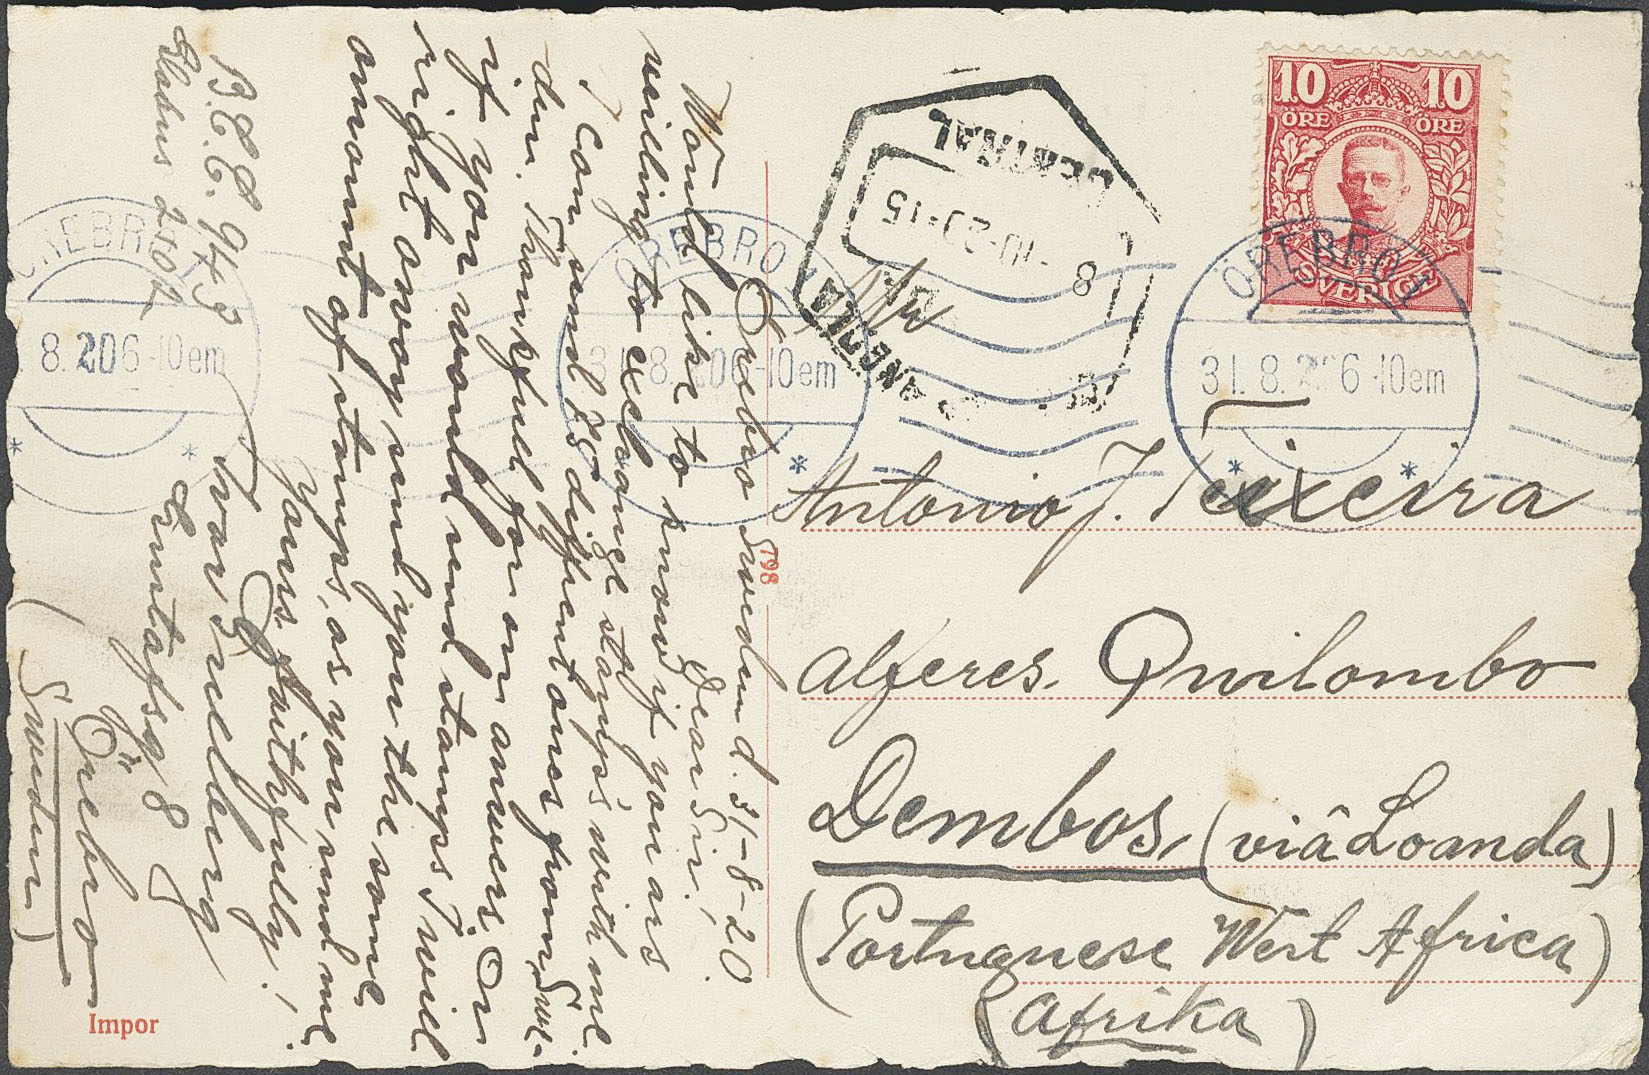 Örebro Sweden d. 31-8-20.
Dear Sir!
Would like to know if you are
willing to exchange stamps with me.
I can send 25 diffrent ones from Swe-
den. Thankful for an answers. Or
if you would send stamps I will
right away send you the same
amount of stamps, as you send me
Yours faithfully!
Ivar
B.E.E. 943
Globus 2702
Örebro
(Sweden)
Impor
798
10 10
ÖRE ÖRE
SVERIGE
ÖREBRO 1
31.8.20 6-10em
ÖREBRO 1
31.8.20 6-10em
ÖREBRO 1
8.20 6-10em
CENTRAL
8-10-20-15
ANGOLA
Antonio J. Teixeira
Alferes. Quilombo
Dembos, (viâ Loanda)
(Portuguese West Africa)
(Afrika)